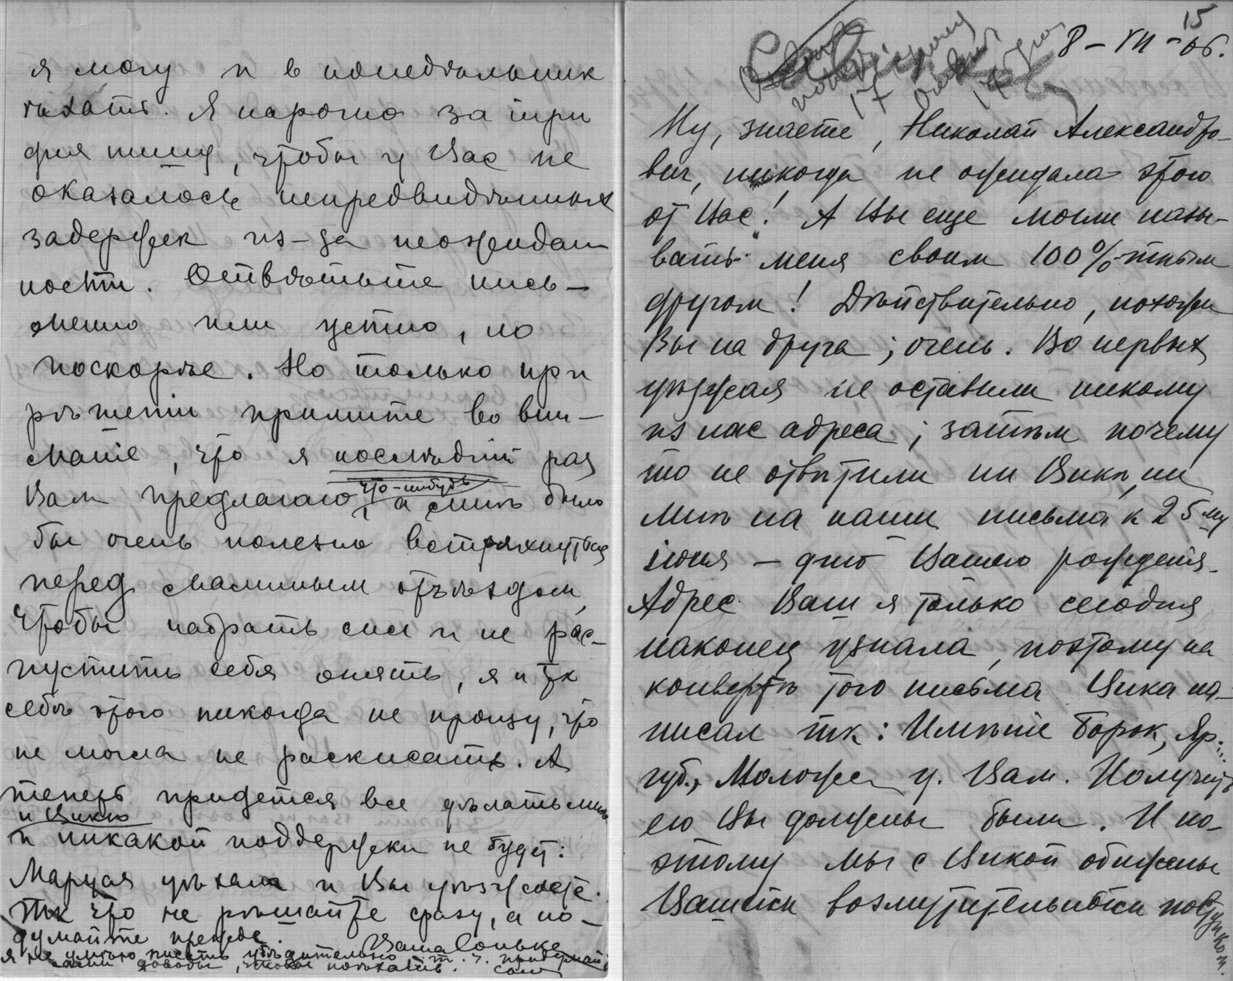 я могу и в понедѣльник
ѣхать. Я нарочно за три
дня пишу, чтобы у Вас не
оказалось непредвидѣнных
задержек из-за неожидан
ности. Отвѣтьте пись-
менно или устно, но
поскорѣе. Но только при
рѣшеніи примите во вни-
маніе, что я послѣдній раз
Вам предлагаю что-нибудь, а мнѣ было
бы очень полезно встряхнуться
перед маминым отъѣздом,
чтобы набрать сил и не рас-
пустить себя опять, я и так
себѣ этого никогда не прощу, что
не могла не раскисать. А
теперь придется все дѣлать мнѣ
и Викѣ
и никакой поддержки не будет:
Маруся уѣхала и Вы уѣзжаете.
Так что не рѣшайте сразу, а по-
думайте прежде. Ваша Сонька
я не умѣю писать убѣдительно, т. ч. придумайте
сами доводы, чтобы поѣхать. сами
15
8 – VII – 06.
17
17
Ну, знаете, Николай Александро-
вич, никогда не ожидала этого
от Вас! А Вы еще могли назы-
вать меня своим 100%-тным
другом! Дѣйствительно, похожи
Вы на друга; очень. Во первых,
уѣзжая не оставили никому
из нас адреса; затѣм почему
то не отвѣтили ни Викѣ, ни
мнѣ на наши письма к 25му
іюня – дню Вашего рожденія.
Адрес Ваш я только сегодня
наконец узнала, поэтому на
конвертѣ того письма Вика на-
писал так: Имѣніе Борок, Яр.
губ., Моложск. у. Вам. Получить
его Вы должны были. И по-
этому мы с Викой обижены
Вашим возмутительным поступком.